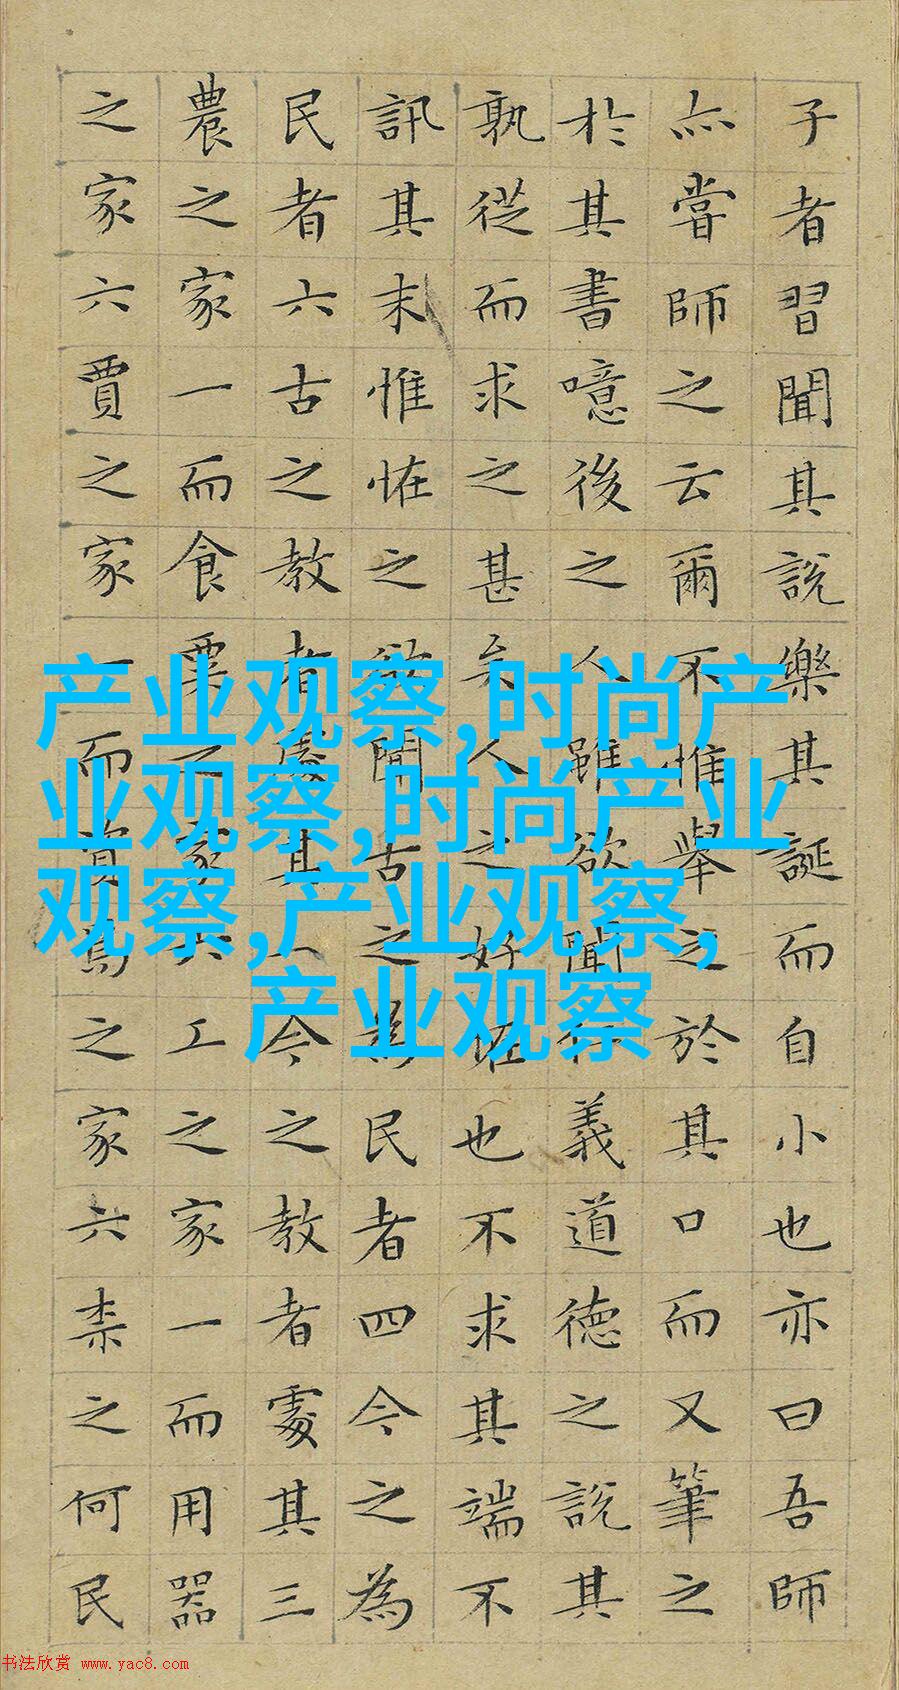 子者習聞其說樂其誕而自小也亦曰吾師
亦嘗師之云爾不惟舉之於其口而又筆之
於其書噫後之人雖欲聞仁義道德之說其
孰從而求之甚矣人之好怪也不求其端不
訊其末惟怪之欲聞古之為民者四今之為
民者六古之教者處其一今之教者處其三
農之家一而食粟之家六工之家一而用器
之家六賈之家一而資焉之家六柰之何民
产业观察,时尚产
业观察,时尚产业
观察,产业观察,
产业观察
书法欣赏 www.yac8.com